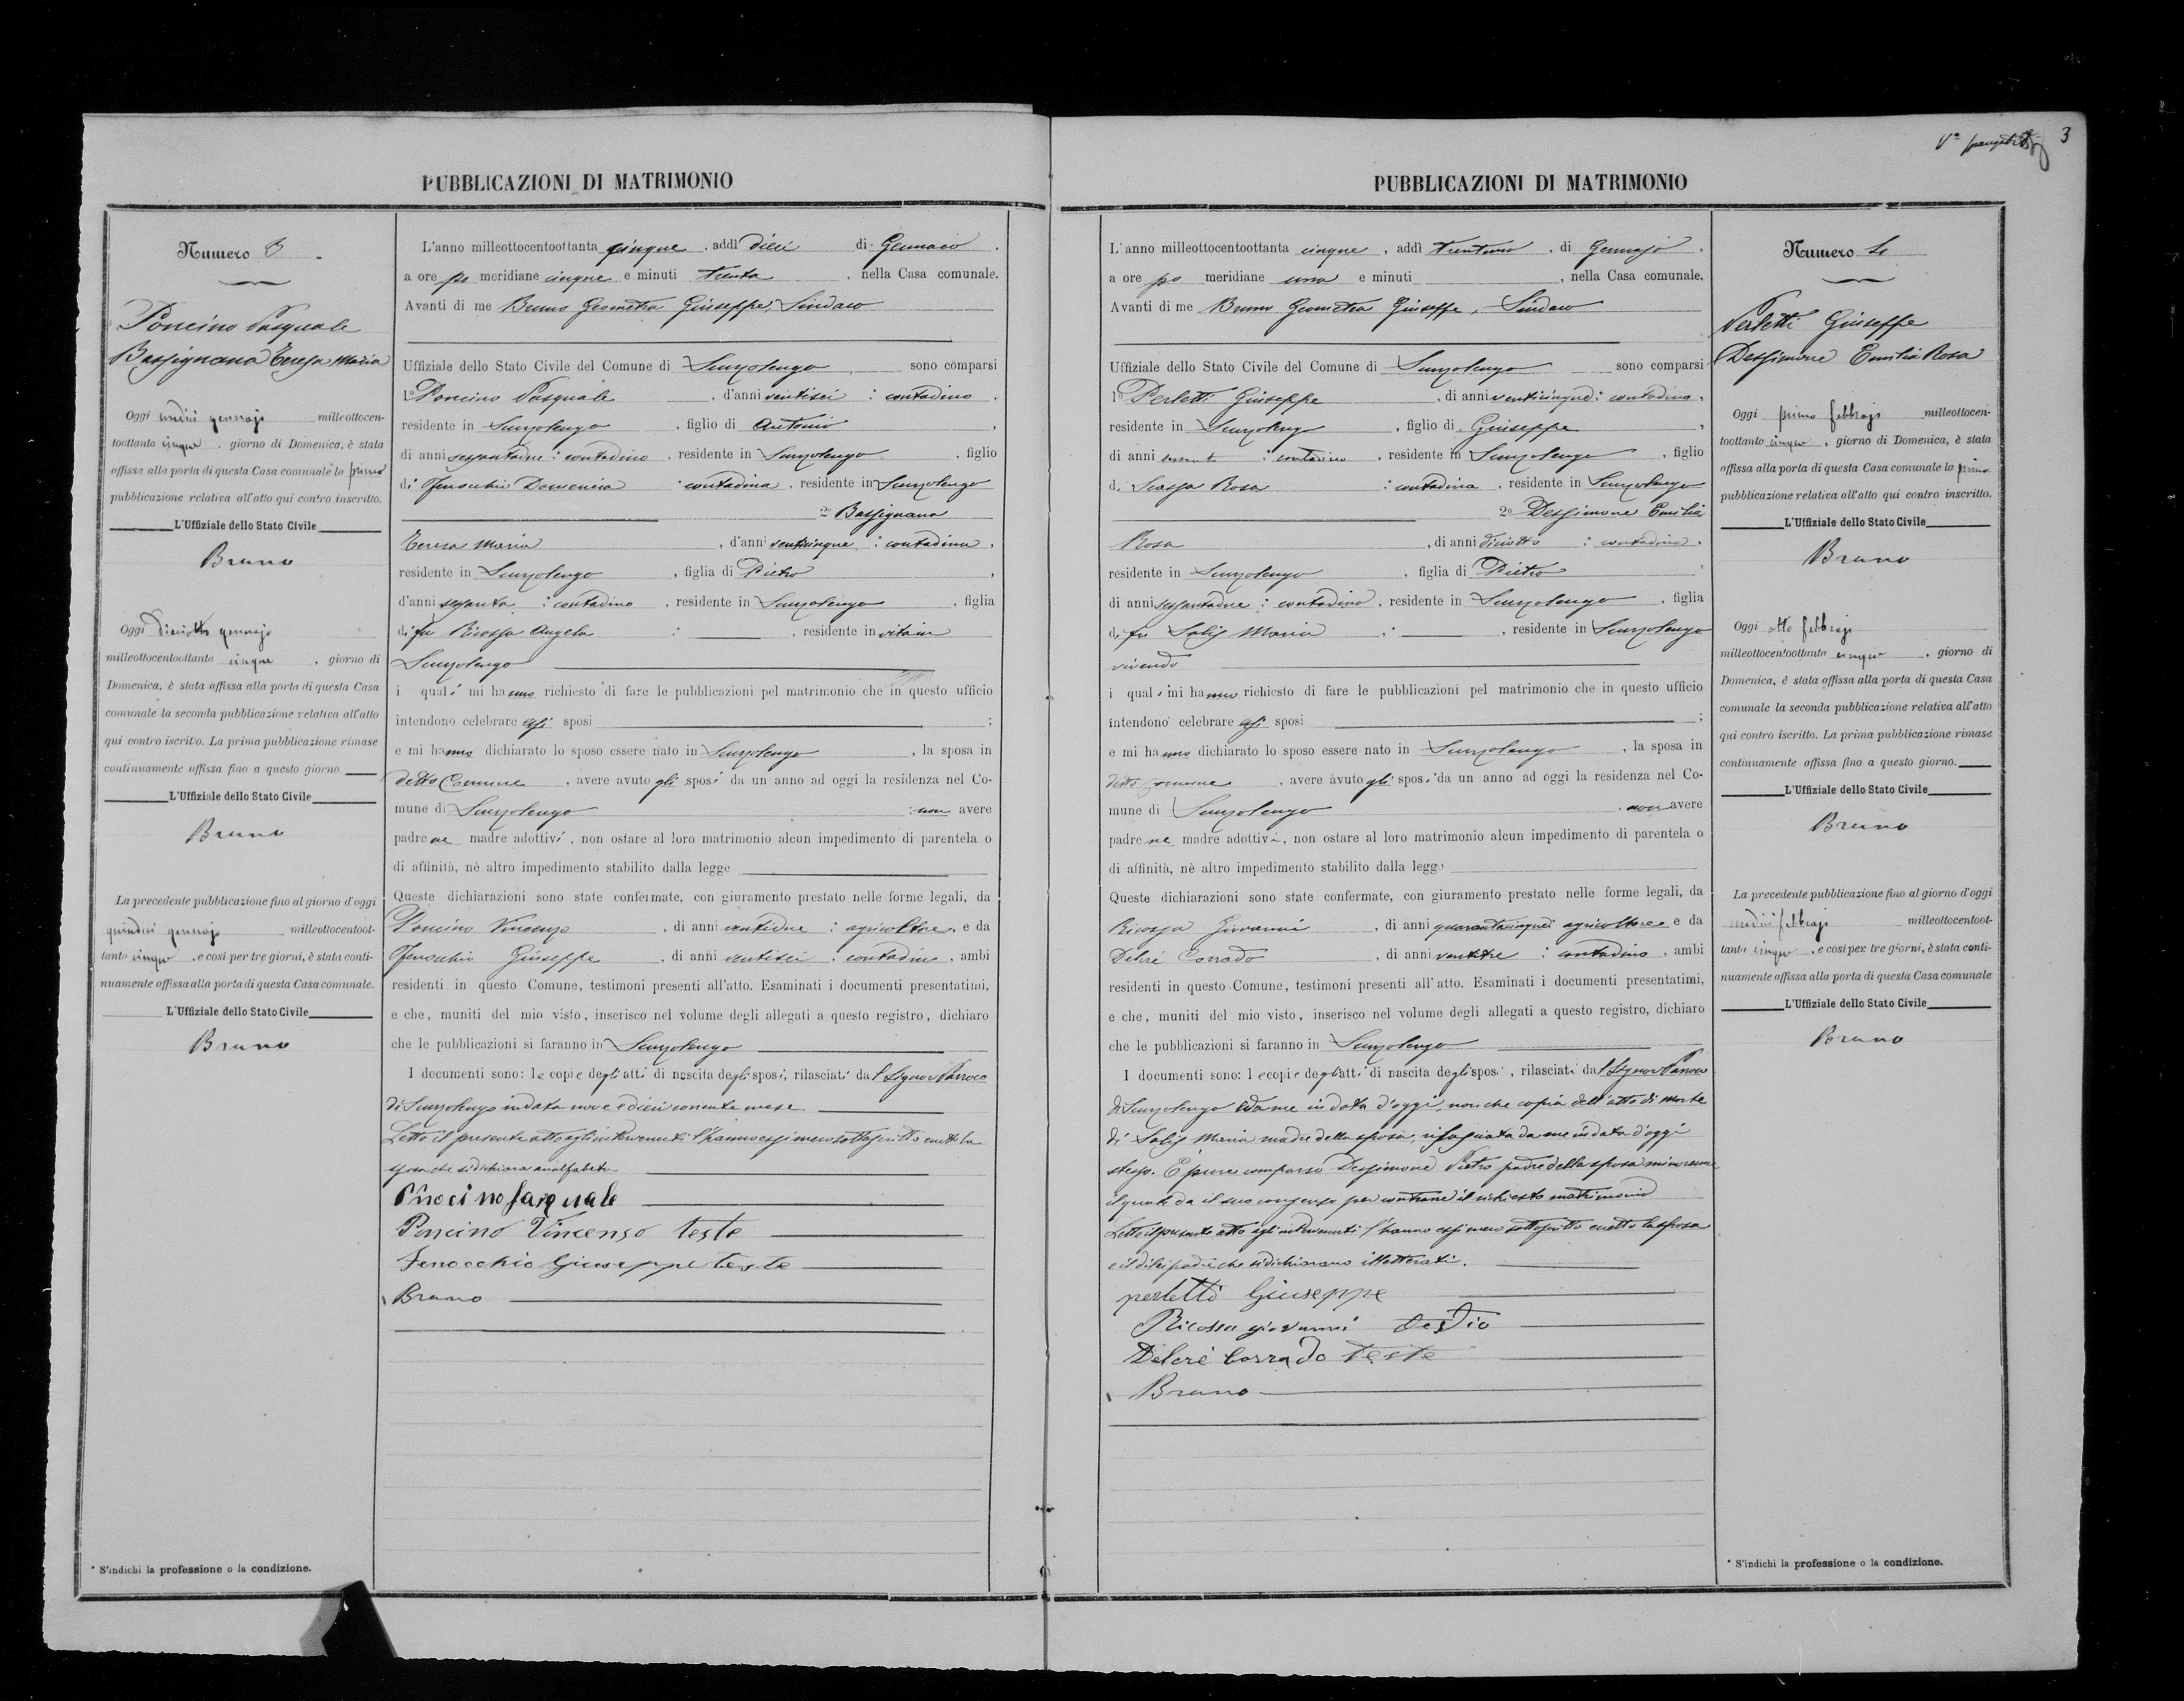 3
PUBBLICAZIONI DI MATRIMONIO
Numero 3
Poncino Pasquale
Bassignana Teresa Maria
Oggi undici gennajo milleottocen-
toottanta cinque, giorno di Domenica, è stata
affissa alla porta di questa Casa comunale la prima
pubblicazione relativa all'atto qui contro inscritto.
L'Uffiziale dello Stato Civile
Bruno
Oggi diciotto gennajo
milleottocentoottanta cinque, giorno di
Domenica, è stata affissa alla porta di questa Casa
comunale la seconda pubblicazione relativa all'atto
qui contro iscritto. La prima pubblicazione rimase
continuamente affissa fino a questo giorno.
L'Uffiziale dello Stato Civile
Bruno
La precedente pubblicazione fino al giorno d'oggi
gennajo milleottocentoot-
tanta cinque, e così per tre giorni, è stata conti-
nuamente affissa alla porta di questa Casa comunale.
L'Uffiziale dello Stato Civile
Bruno
* S'indichi la professione o la condizione.
L'anno milleottocentoottanta cinque, addì dieci di Gennaio,
a ore po meridiane cinque e minuti trenta, nella Casa comunale.
Avanti di me Bruno Geometra Giuseppe, Sindaco
Uffiziale dello Stato Civile del Comune di Scurzolengo sono comparsi
1° Poncino Pasquale, d'anni ventisei: contadino,
residente in Scurzolengo, figlio di Antonio,
di anni sessantadue: contadino, residente in Scurzolengo, figlio
di Fenocchio Domenica: contadina, residente in Scurzolengo
2° Bassignana
Teresa Maria, d'anni venticinque: contadina,
residente in Scurzolengo, figlia di Pietro,
d'anni sessanta: contadino, residente in Scurzolengo, figlia
di fu Ricossa Angela: , residente in vita in
Scurzolengo
i quali mi hanno richiesto di fare le pubblicazioni pel matrimonio che in questo ufficio
intendono celebrare essi sposi ;
e mi hanno dichiarato lo sposo essere nato in Scurzolengo, la sposa in
detto Comune, avere avuto gli sposi da un anno ad oggi la residenza nel Co-
mune di Scurzolengo: non avere
padre ne madre adottivi, non ostare al loro matrimonio alcun impedimento di parentela o
di affinità, nè altro impedimento stabilito dalla legge
Queste dichiarazioni sono state confermate, con giuramento prestato nelle forme legali, da
Poncino Vincenzo, di anni ventidue: agricoltore, e da
Fenocchio Giuseppe, di anni ventisei: contadino, ambi
residenti in questo Comune, testimoni presenti all'atto. Esaminati i documenti presentatimi,
e che, muniti del mio visto, inserisco nel volume degli allegati a questo registro, dichiaro
che le pubblicazioni si faranno in Scurzolengo
I documenti sono: le copie degli atti di nascita degli sposi, rilasciati dal Signor Parroco
di Scurzolengo in data nove e dieci corrente mese.
Letto il presente atto agli intervenuti l'hanno essi meco sottoscritto eccetto la
sposa che si dichiara analfabeta
Pasquale
Poncino Vincenso teste
Fenocchio Giuseppe teste
Bruno
PUBBLICAZIONI DI MATRIMONIO
L'anno milleottocentoottanta cinque, addì trentuno, di Gennajo,
a ore po meridiane una e minuti , nella Casa comunale.
Avanti di me Bruno Geometra Giuseppe, Sindaco
Uffiziale dello Stato Civile del Comune di Scurzolengo sono comparsi
1° Perletti Giuseppe, di anni venticinque: contadino,
residente in Scurzolengo, figlio di Giuseppe,
di anni : contadino, residente in Scurzolengo, figlio
di Scassa Rosa: contadina, residente in Scurzolengo
2° Dessimone Emilia
Rosa, di anni diciotto: contadina,
residente in Scurzolengo, figlia di Pietro,
di anni sessantadue: contadino, residente in Scurzolengo, figlia
di fu Maria: , residente in Scurzolengo
vivendo
i quali mi hanno richiesto di fare le pubblicazioni pel matrimonio che in questo ufficio
intendono celebrare essi sposi ;
e mi hanno dichiarato lo sposo essere nato in Scurzolengo, la sposa in
detto Comune, avere avuto gli sposi da un anno ad oggi la residenza nel Co-
mune di Scurzolengo: non avere
padre ne madre adottivi, non ostare al loro matrimonio alcun impedimento di parentela o
di affinità, nè altro impedimento stabilito dalla legge
Queste dichiarazioni sono state confermate, con giuramento prestato nelle forme legali, da
Ricossa Giovanni, di anni quarantacinque: agricoltore e da
Delcré Corrado, di anni ventitre: contadino, ambi
residenti in questo Comune, testimoni presenti all'atto. Esaminati i documenti presentatimi,
e che, muniti del mio visto, inserisco nel volume degli allegati a questo registro, dichiaro
che le pubblicazioni si faranno in Scurzolengo
I documenti sono: le copie degli atti di nascita degli sposi, rilasciati dal Signor Parroco
di Scurzolengo e da me in data d'oggi, nonchè copia dell'atto di morte
di Maria madre della sposa, rilasciata da me in data d'oggi
stesso. È pure comparso Dessimone Pietro padre della sposa minorenne
il quale dà il suo consenso per contrarre il richiesto matrimonio
Letto il presente atto agli intervenuti l'hanno essi meco sottoscritto eccetto la sposa
e il di lei padre che si dichiarano illetterati.
perletti Giuseppe
Ricossa giovanni
Delcré Corrado teste
Bruno
Numero 4
Perletti Giuseppe
Dessimone Emilia Rosa
Oggi primo febbrajo milleottocen-
toottanta cinque, giorno di Domenica, è stata
affissa alla porta di questa Casa comunale la prima
pubblicazione relativa all'atto qui contro inscritto.
L'Uffiziale dello Stato Civile
Bruno
Oggi otto febbrajo
milleottocentoottanta cinque, giorno di
Domenica, è stata affissa alla porta di questa Casa
comunale la seconda pubblicazione relativa all'atto
qui contro iscritto. La prima pubblicazione rimase
continuamente affissa fino a questo giorno.
L'Uffiziale dello Stato Civile
Bruno
La precedente pubblicazione fino al giorno d'oggi
undici febbrajo milleottocentoot-
tanta cinque, e così per tre giorni, è stata conti-
nuamente affissa alla porta di questa Casa comunale
L'Uffiziale dello Stato Civile
Bruno
* S'indichi la professione o la condizione.